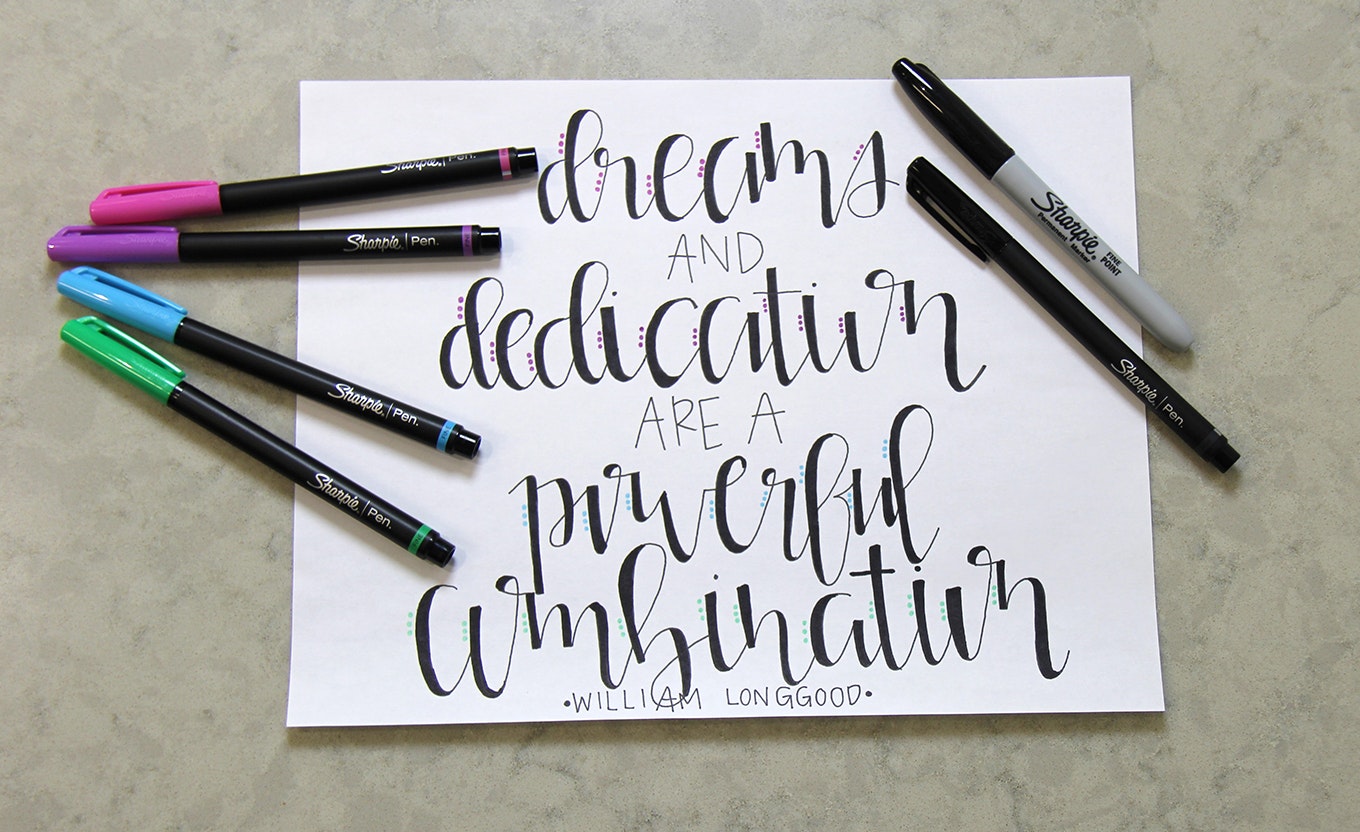 dreams
AND
dedication
ARE A
powerful
combination
•WILLIAM LONGGOOD•
Sharpie. | Pen.
Sharpie. | Pen.
Sharpie. | Pen.
Sharpie. | Pen.
Sharpie.
Permanent Marker
FINE
POINT
Sharpie. | Pen.